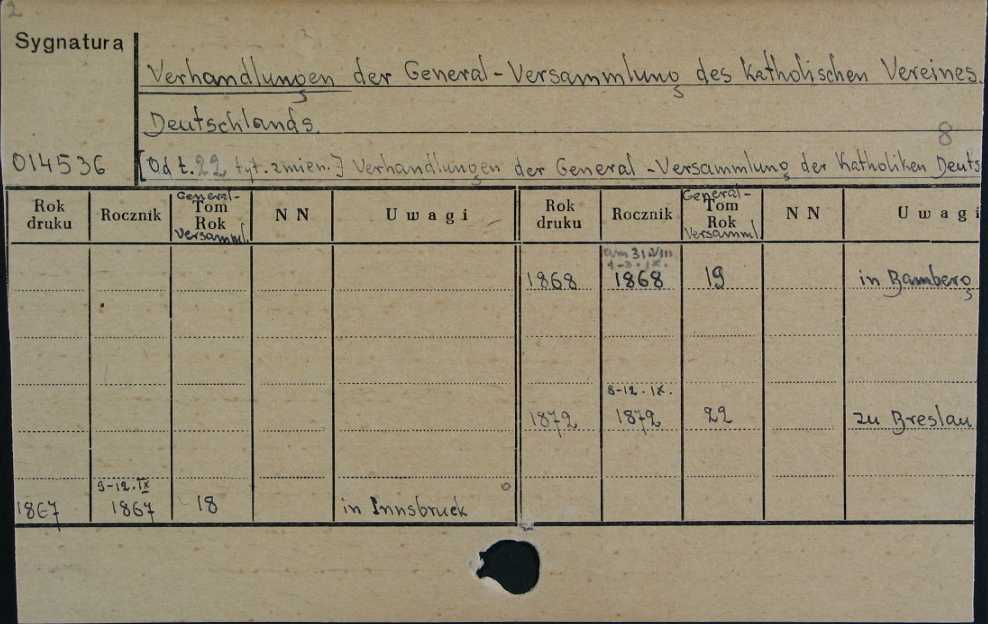 2
Sygnatura
Verhandlungen der General-Versammlung des Katholischen Vereines.
Deutschlands.
8
014536
[Od t. 22 tyt. zmien.] Verhandlungen der General-Versammlung der Katholiken Deuts
Rok druku Rocznik General- Tom Rok Versamml. NN Uwagi Rok druku Rocznik General- Tom Rok Versamml. NN Uwagi
am 31 VIII
1868 1868 19 in Bamberg
8-12. IX.
1872 1872 22 zu Breslau
9-12. IX
1867 1867 18 in Innsbruck